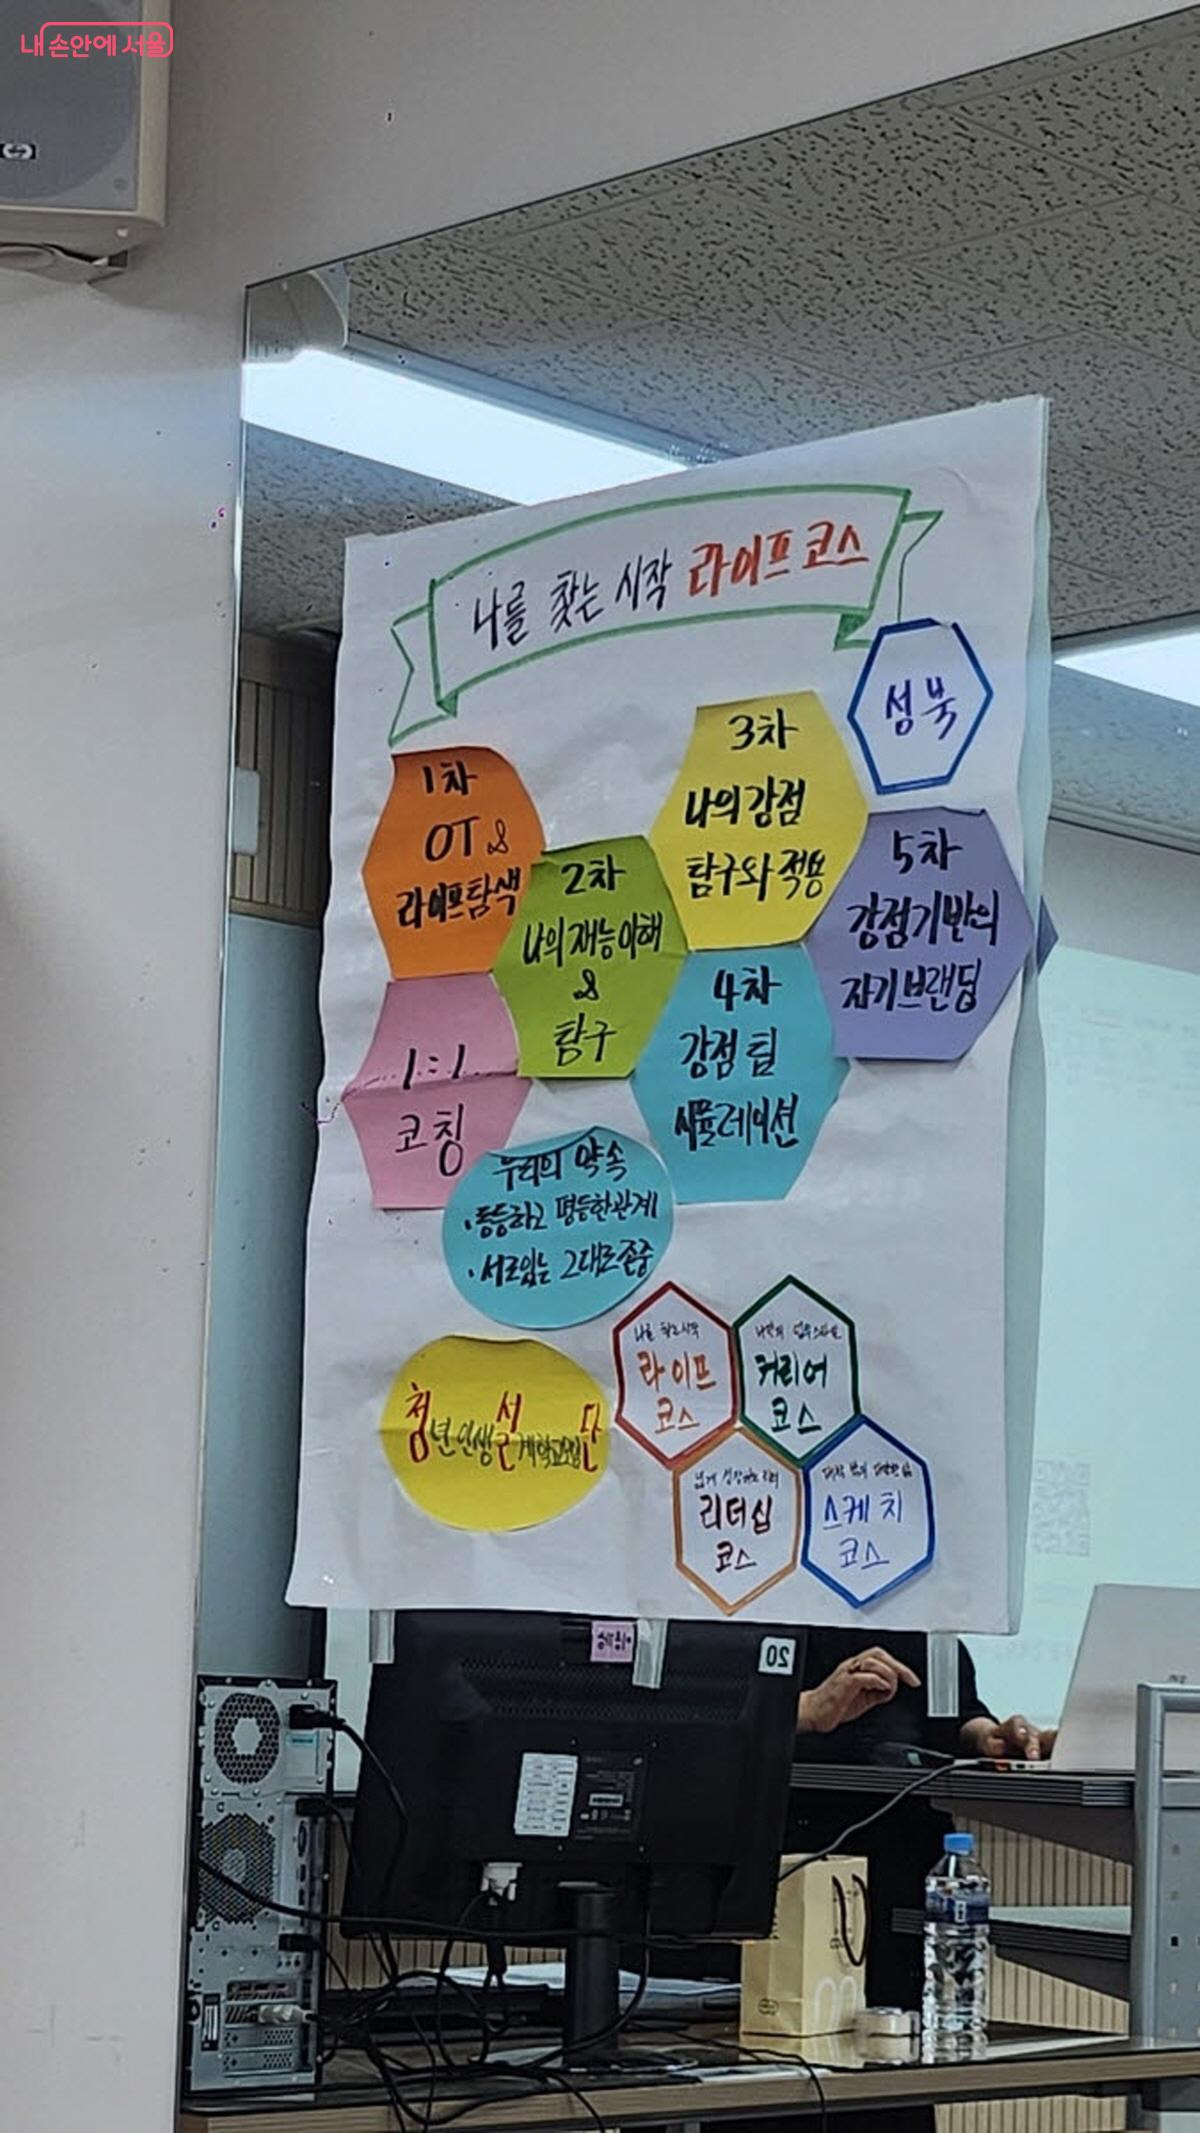 내 손안에 서울
나를 찾는 시작 라이프코스
성북
1차
OT &
라이프탐색
2차
나의 재능이해
&
탐구
3차
나의 강점
탐구와 적용
4차
강점 팀
시뮬레이션
5차
강점기반의
자기브랜딩
1:1
코칭
우리의 약속
· 동등하고 평등한관계
· 서로있는 그대로존중
청년인생설계학교
단
나를 찾는 시작
라이프
코스
커리어
코스
리더십
코스
스케치
코스
20